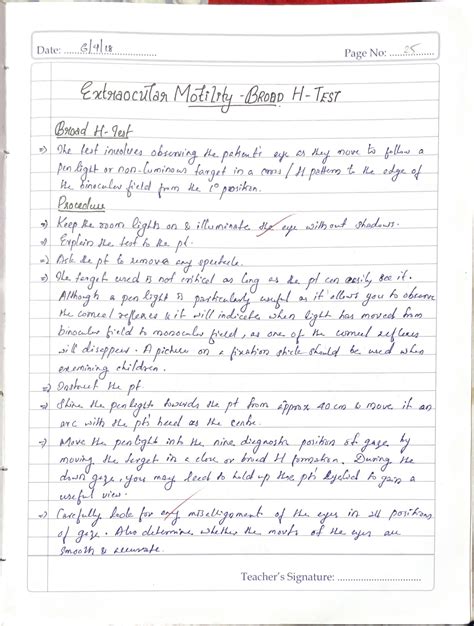 Date: 6/9/18 Page No: 25
Extraocular Motility - BROAD H-TEST
Broad H-Test
=) The test involves observing the patient's eye as they move to follow a
pen light or non-luminous target in a cross / H pattern to the edge of
the binocular field from the 1° position.
Procedure
=) Keep the room lights on & illuminate the eye without shadows.
=) Explain the test to the pt.
=) Ask the pt to remove any spectacle.
=) The target used is not critical as long as the pt can easily see it.
Although a pen light is particularly useful as it allows you to observe
the corneal reflexes & it will indicate when light has moved from
binocular field to monocular field, as one of the corneal reflexes
will disappear. A picture on a fixation stick should be used when
examining children.
=) Instruct the pt.
=) Shine the penlight towards the pt from approx 40 cm & move it an
arc with the pt's head as the centre.
=) Move the penlight into the nine diagnostic position of gaze by
moving the target in a or broad H formation. During the
down gaze, you may need to hold up the pt's eyelid to gain a
useful view.
=) Carefully look for any misalignment of the eyes in all positions
of gaze. Also determine whether the movts of the eyes are
smooth & accurate.
Teacher's Signature: